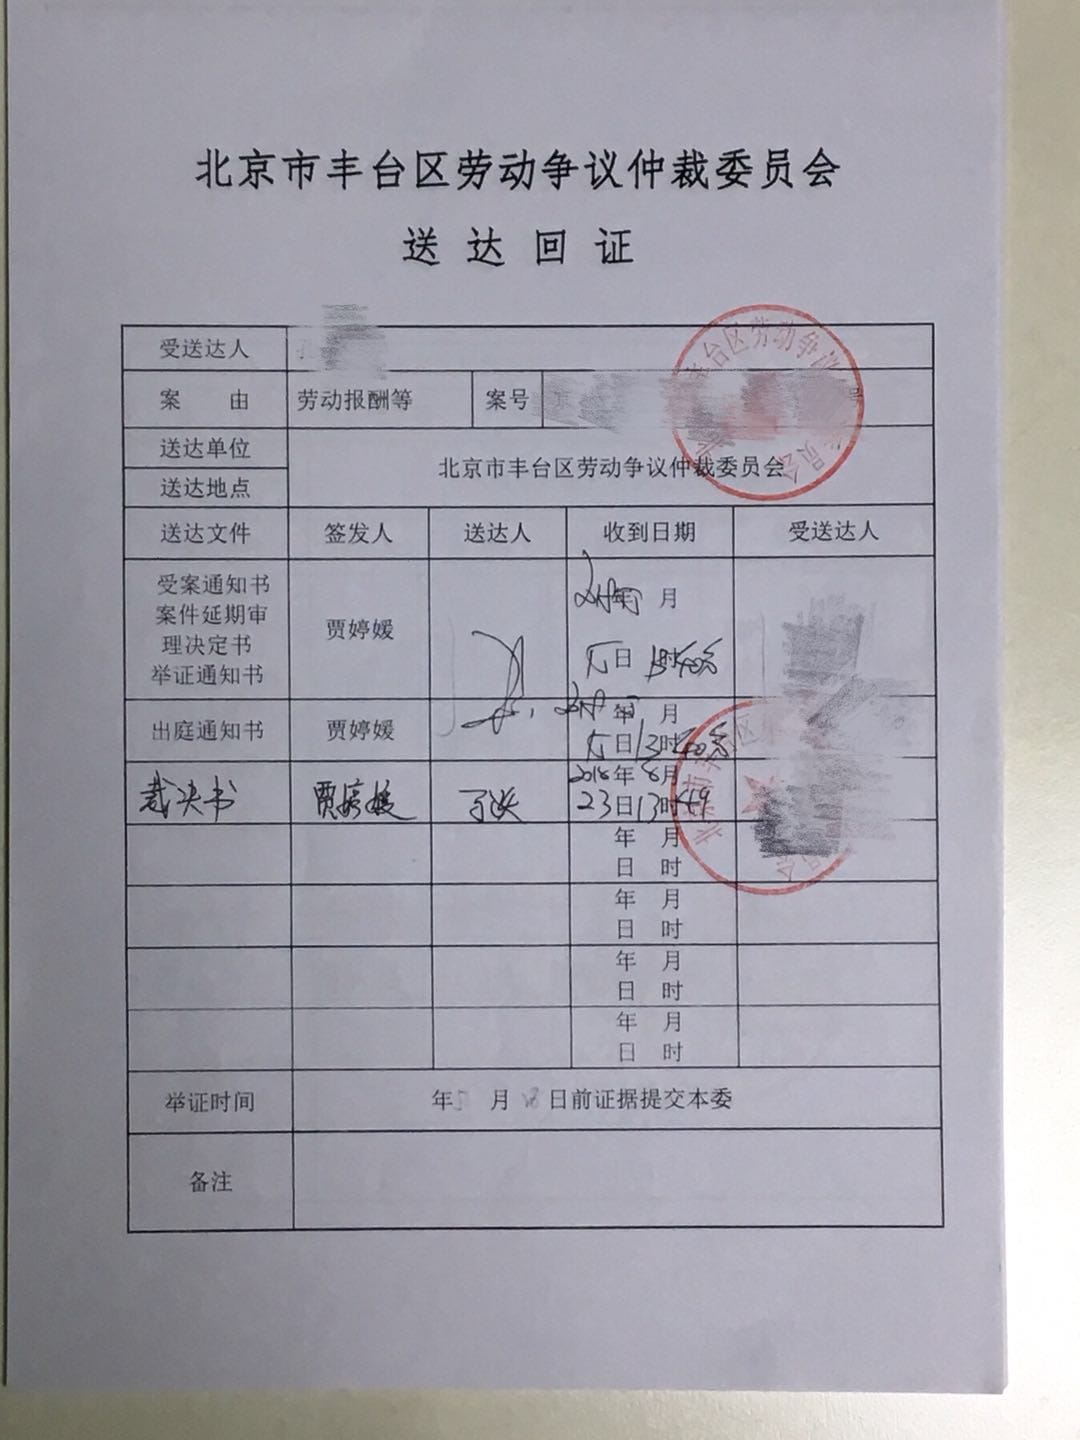 北京市丰台区劳动争议仲裁委员会
送达回证
受送达人
案 由 劳动报酬等 案号
送达单位
北京市丰台区劳动争议仲裁委员会
送达地点
送达文件 签发人 送达人 收到日期 受送达人
受案通知书
案件延期审
理决定书
举证通知书
贾婷媛
月
日 时
出庭通知书 贾婷媛
年 月
日13时
裁决书 贾婷媛
2018年8月
23日13时49
年 月
日 时
年 月
日 时
年 月
日 时
年 月
日 时
举证时间 年 月 日前证据提交本委
备注